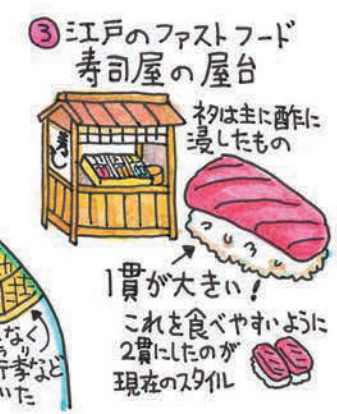 ③江戸のファストフード
寿司屋の屋台
ネタは主に酢に
浸したもの
1貫が大きい！
これを食べやすいように
2貫にしたのが
現在のスタイル
なく)
行李など
いた